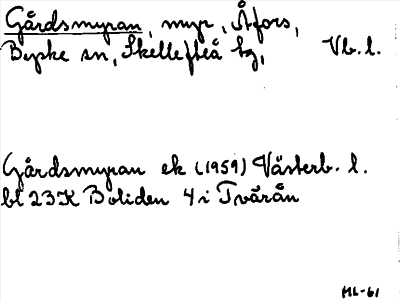 Gårdsmyran, myr, Åfors,
Byske sn, Skellefteå tg, Vb. l.
Gårdsmyran ek (1959) Västerb. l.
bl 23K Boliden 4 i Tvärån
HL-61